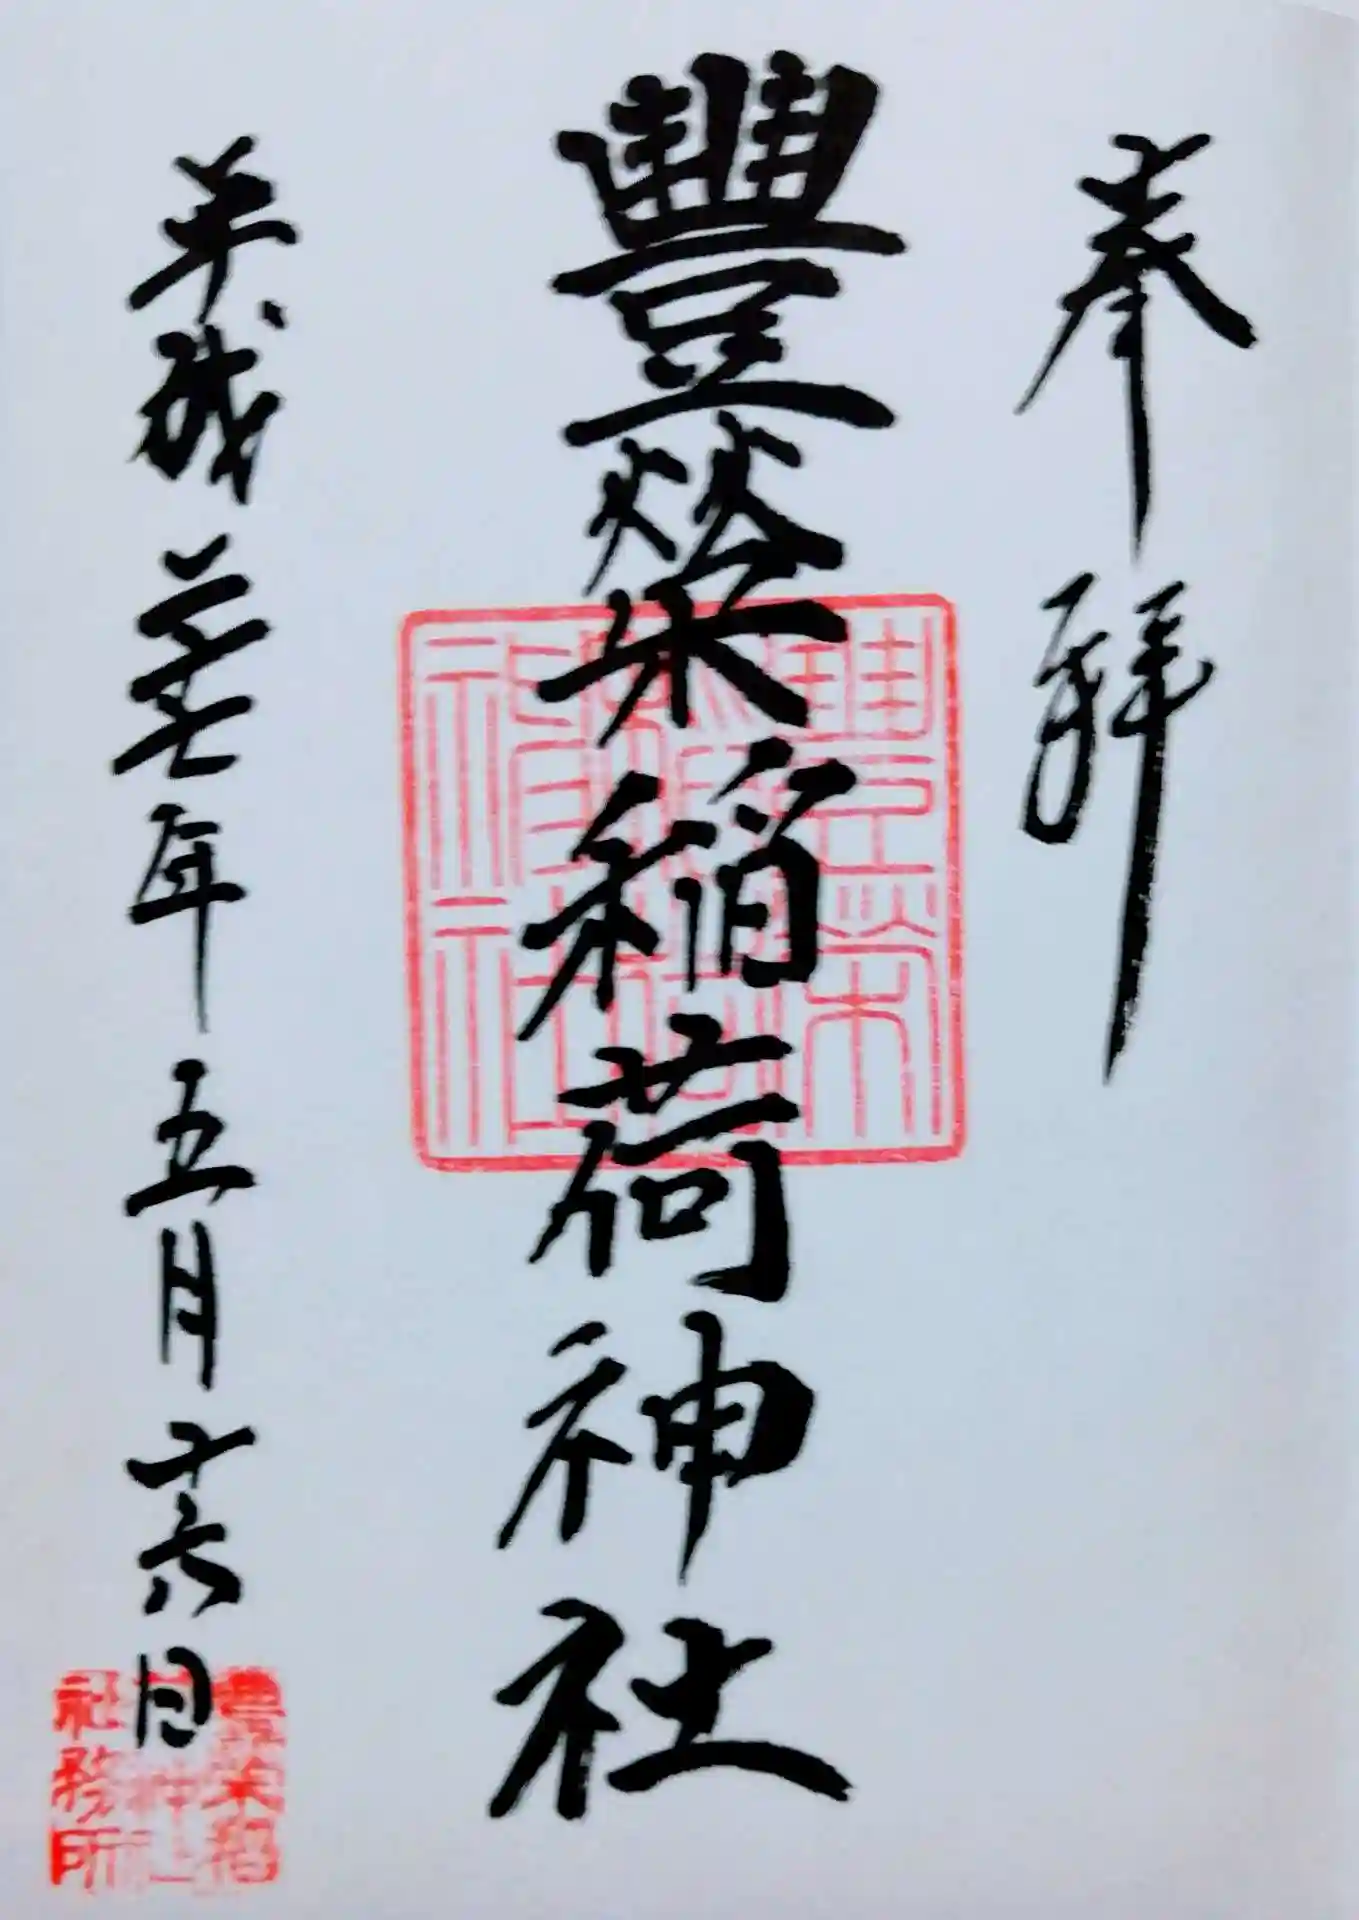 奉拝
豐榮稲荷神社
豊栄
稲荷
神社
平成廿七年五月十六日
豊栄稲
荷神社
社務所